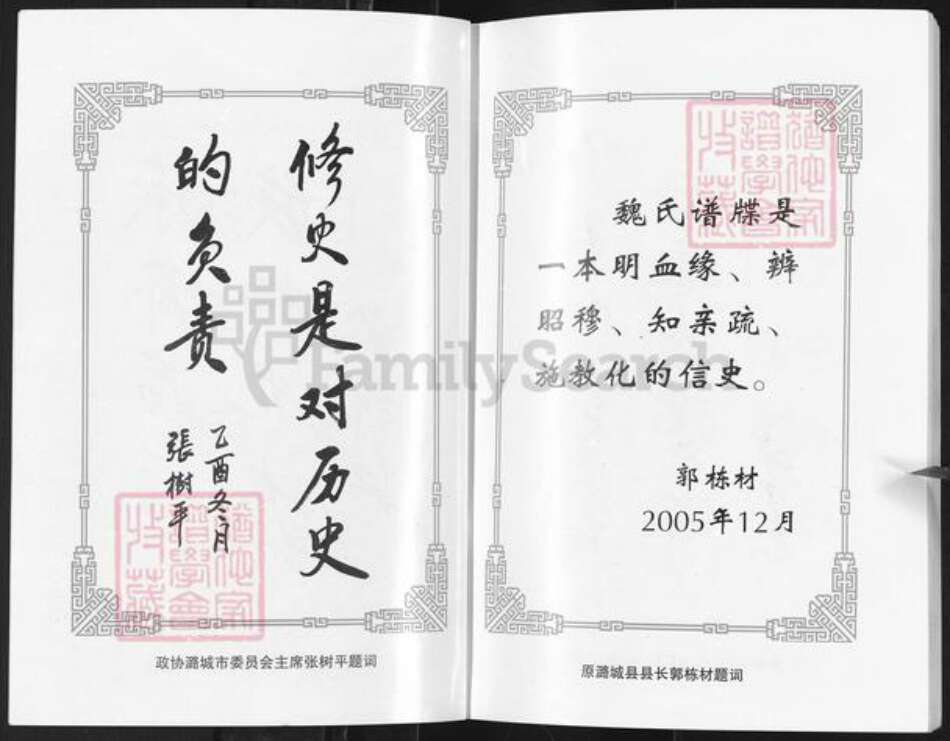 修史是对历史
的负责
乙酉冬月
張樹平
政协潞城市委员会主席张树平题词
魏氏谱牒是
一本明血缘、辨
昭穆、知亲疏、
施教化的信史。
郭栋材
2005年12月
原潞城县县长郭栋材题词
FamilySearch